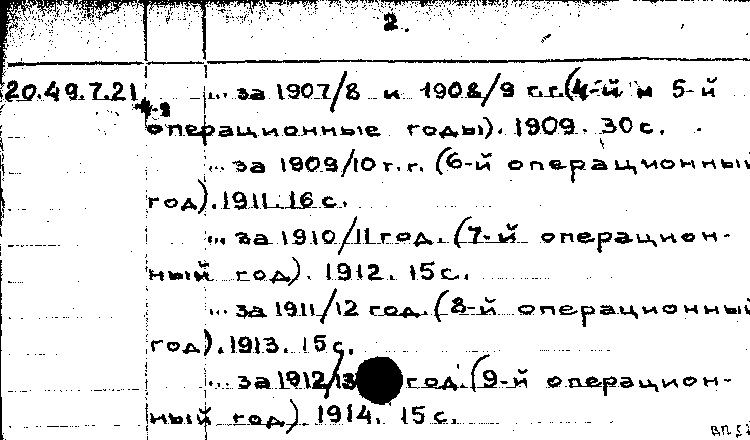 2.
20.49.7.21 ... за 1907/8 и 1908/9 г.г. (4-й и 5-й
операционные годы). 1909. 30 с.
... за 1909/10 г.г. (6-й операционный
год). 1911. 16 с.
... за 1910/11 год. (7-й операцион-
ный год). 1912. 15 с.
... за 1911/12 год. (8-й операционный
год). 1913. 15 с.
... за 1912/13 год. (9-й операцион-
ный год). 1914. 15 с.